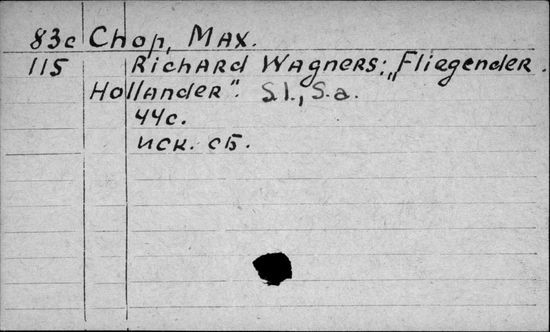 83c Chop, Max.
115 Richard Wagners: „Fliegender
Hollander". S.l., S.a.
44c.
иск. сб.